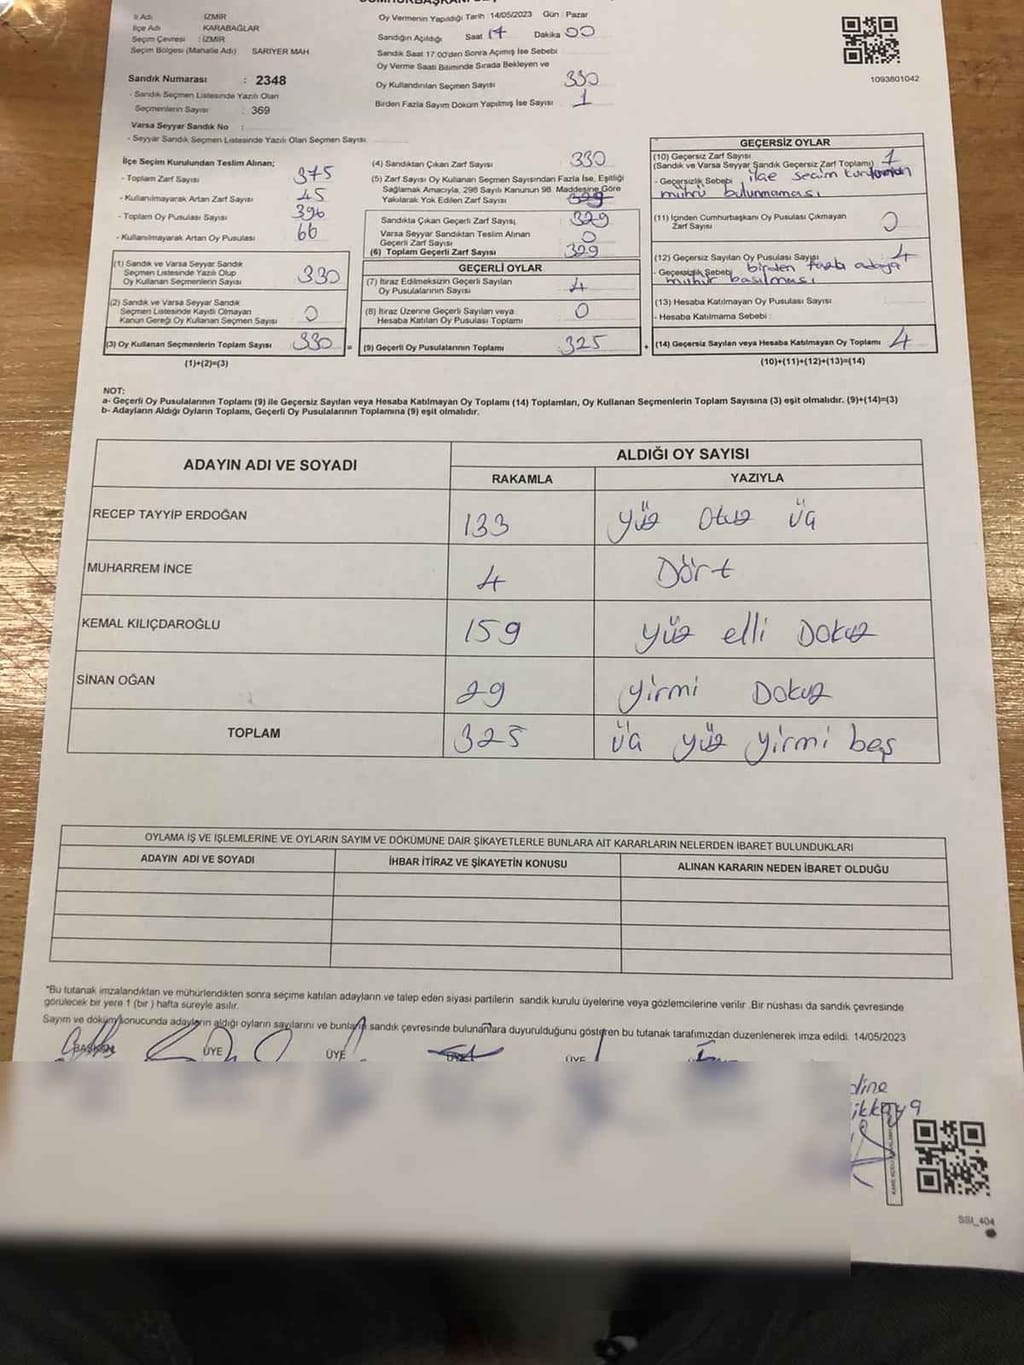 İl Adı : İZMİR
İlçe Adı KARABAĞLAR
Seçim Çevresi : İZMİR
Seçim Bölgesi (Mahalle Adı) SARIYER MAH
Sandık Numarası : 2348
- Sandık Seçmen Listesinde Yazılı Olan
Seçmenlerin Sayısı : 369
Varsa Seyyar Sandık No :
- Seyyar Sandık Seçmen Listesinde Yazılı Olan Seçmen Sayısı
Oy Vermenin Yapıldığı Tarih : 14/05/2023 Gün : Pazar
Sandığın Açıldığı Saat 17 Dakika 00
Sandık Saat 17.00'den Sonra Açımış İse Sebebi
Oy Verme Saati Bitiminde Sırada Bekleyen ve
Oy Kullandırılan Seçmen Sayısı 330
Birden Fazla Sayım Döküm Yapılmış İse Sayısı 1
1093801042
İlçe Seçim Kurulundan Teslim Alınan;
- Toplam Zarf Sayısı 375
- Kullanılmayarak Artan Zarf Sayısı 45
- Toplam Oy Pusulası Sayısı 396
- Kullanılmayarak Artan Oy Pusulası 66
(1) Sandık ve Varsa Seyyar Sandık
Seçmen Listesinde Yazılı Olup
Oy Kullanan Seçmenlerin Sayısı 330
(2) Sandık ve Varsa Seyyar Sandık
Seçmen Listesinde Kaydı Olmayan
Kanun Gereği Oy Kullanan Seçmen Sayısı 0
(3) Oy Kullanan Seçmenlerin Toplam Sayısı 330 =
(1)+(2)=(3)
(4) Sandıktan Çıkan Zarf Sayısı 330
(5) Zarf Sayısı Oy Kullanan Seçmen Sayısından Fazla İse, Eşitliği
Sağlamak Amacıyla, 298 Sayılı Kanunun 98. Maddesine Göre
Yakılarak Yok Edilen Zarf Sayısı 329
Sandıkta Çıkan Geçerli Zarf Sayısı, 329
Varsa Seyyar Sandıktan Teslim Alınan
Geçerli Zarf Sayısı 0
(6) Toplam Geçerli Zarf Sayısı 329
GEÇERLİ OYLAR
(7) İtiraz Edilmeksizin Geçerli Sayılan
Oy Pusulalarının Sayısı 4
(8) İtiraz Üzerine Geçerli Sayılan veya
Hesaba Katılan Oy Pusulası Toplamı 0
(9) Geçerli Oy Pusulalarının Toplamı 325 +
GEÇERSİZ OYLAR
(10) Geçersiz Zarf Sayısı 1
(Sandık ve Varsa Seyyar Sandık Geçersiz Zarf Toplamı)
- Geçersizlik Sebebi ilçe seçim kurulunun
mührü bulunmaması
(11) İçinden Cumhurbaşkanı Oy Pusulası Çıkmayan
Zarf Sayısı 0
(12) Geçersiz Sayılan Oy Pusulası Sayısı 4
- Geçersizlik Sebebi birden fazla adaya
mühür basılması
(13) Hesaba Katılmayan Oy Pusulası Sayısı
- Hesaba Katılmama Sebebi :
(14) Geçersiz Sayılan veya Hesaba Katılmayan Oy Toplamı 4
(10)+(11)+(12)+(13)=(14)
NOT:
a- Geçerli Oy Pusulalarının Toplamı (9) ile Geçersiz Sayılan veya Hesaba Katılmayan Oy Toplamı (14) Toplamları, Oy Kullanan Seçmenlerin Toplam Sayısına (3) eşit olmalıdır. (9)+(14)=(3)
b- Adayların Aldığı Oyların Toplamı, Geçerli Oy Pusulalarının Toplamına (9) eşit olmalıdır.
ADAYIN ADI VE SOYADI
ALDIĞI OY SAYISI
RAKAMLA YAZIYLA
RECEP TAYYİP ERDOĞAN 133 yüz otuz üç
MUHARREM İNCE 4 Dört
KEMAL KILIÇDAROĞLU 159 yüz elli Dokuz
SİNAN OĞAN 29 yirmi Dokuz
TOPLAM 325 üç yüz yirmi beş
OYLAMA İŞ VE İŞLEMLERİNE VE OYLARIN SAYIM VE DÖKÜMÜNE DAİR ŞİKAYETLERLE BUNLARA AİT KARARLARIN NELERDEN İBARET BULUNDUKLARI
ADAYIN ADI VE SOYADI İHBAR İTİRAZ VE ŞİKAYETİN KONUSU ALINAN KARARIN NEDEN İBARET OLDUĞU
"Bu tutanak imzalandıktan ve mühürlendikten sonra seçime katılan adayların ve talep eden siyasi partilerin sandık kurulu üyelerine veya gözlemcilerine verilir .Bir nüshası da sandık çevresinde
görülecek bir yere 1 (bir ) hafta süreyle asılır.
Sayım ve döküm sonucunda adayların aldığı oyların sayılarını ve bunların sandık çevresinde bulunanlara duyurulduğunu gösteren bu tutanak tarafımızdan düzenlenerek imza edildi. 14/05/2023
BAŞKAN ÜYE ÜYE ÜYE ÜYE
SSI_404